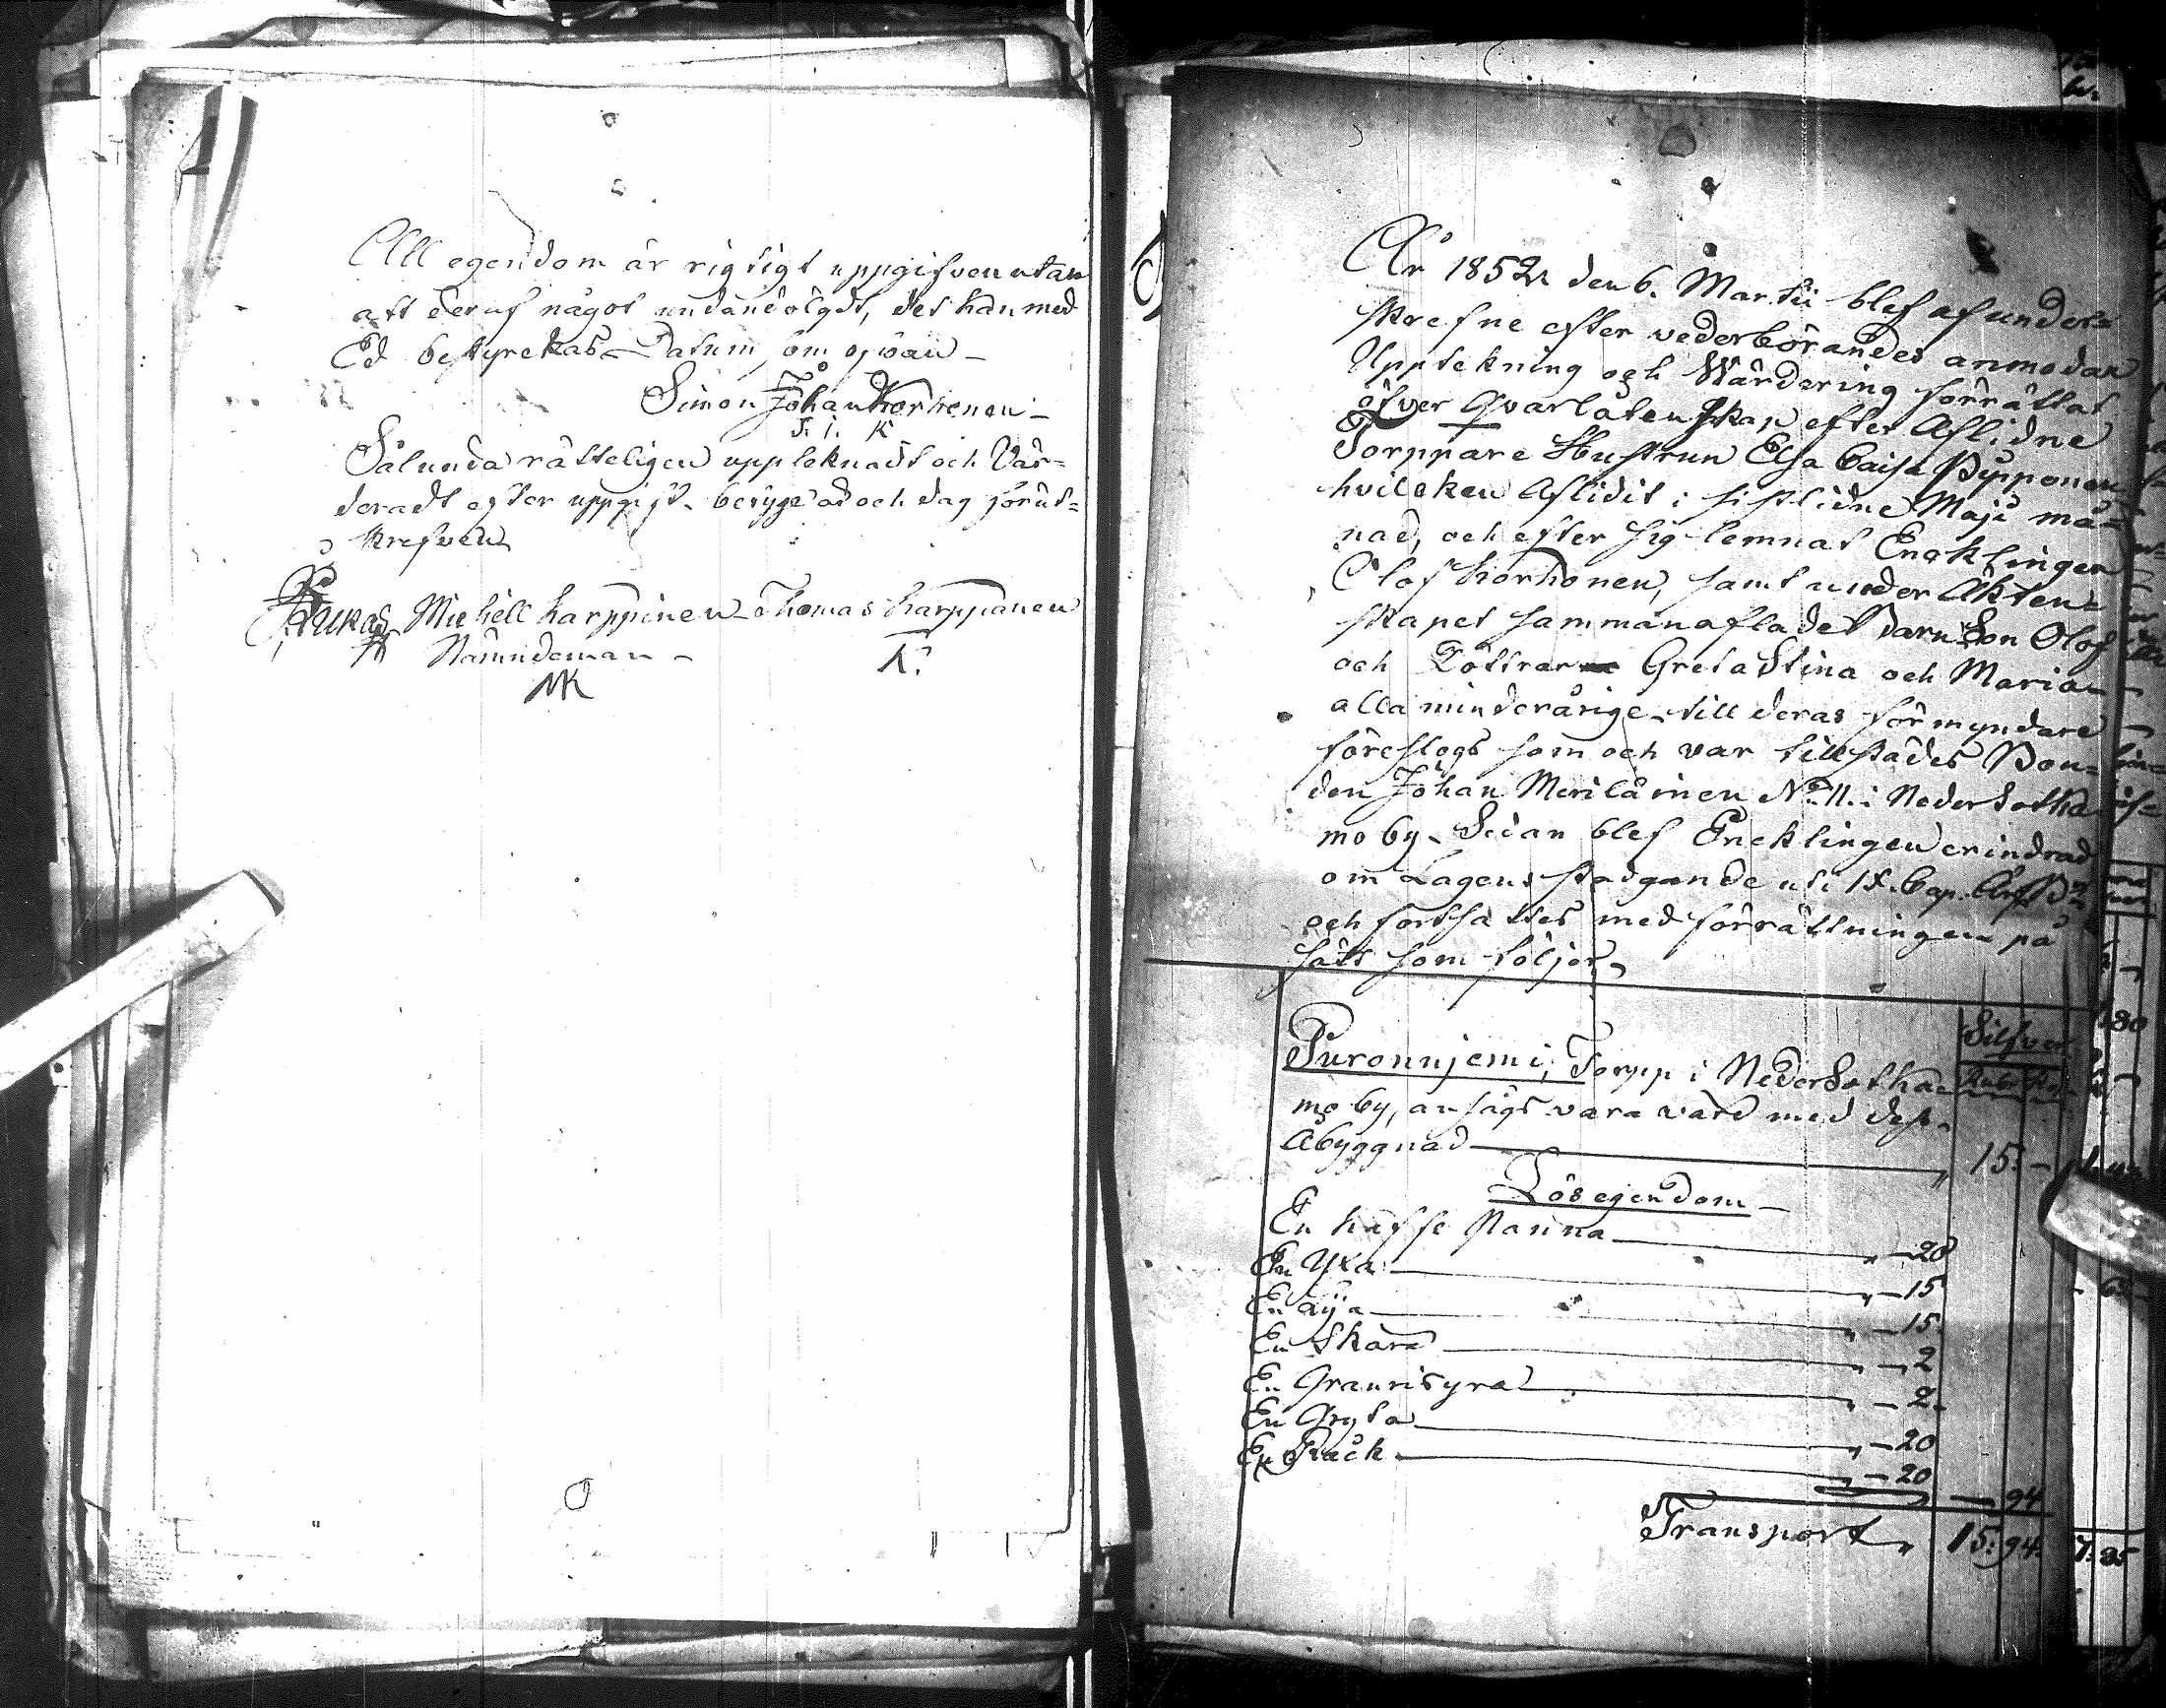 All egendom är rigtigt uppgifven utan
att deraf något undandölgdt, det han med
Ed bestyrekas Datum som ofvan
Simon Johan Korhonen
S. i. K
Sålunda rätteligen uppteknadt och Vär=
deradt efter uppgift. betyge År och dag förut=
skrefven
Michell Karppinen Thomas Karppanen
Nämndeman
MK
K.
År 1852 den 6. Martii blef af under=
skrefne efter vederbörandes anmodan
Upptekning och Wärdering förrättat
öfver Qvarlåtenskap efter Aflidne
Torppare Hustrun Elsa Caisa Pypponen
hvileken Aflidit i sistlidne Maji må=
nad, och efter sig lemnat Encklingen
Olof Korhonen, samt under Äkten=
skapet sammanaflade Barn Son Olof
och Döttrar Greta Stina och Maria
alla minderårige till deras förmyndare
föreslogs som och var tillstädes Bon=
den Johan Meriläinen No 11. i Nedersotka
mo by. Sedan blef Encklingen erindrad
om Lagens stadgande uti 18. Cap. Ärf B:
och fortsattes med förrättningen på
sätt som följer
Silfver
Rub. Kop.
Puronnjemi, Torpp i Nedersotka=
mo by, ansågs vara värd med dess
Åbyggnad 15. —
Lösegendom
En kaffe Panna " — 20
En Yxa " — 15
En " — 15.
En Skära " — 2
En Granrisyxa " — 2.
En Gryta " — 20
En " — 20
— 94
Transport " 15. 94.